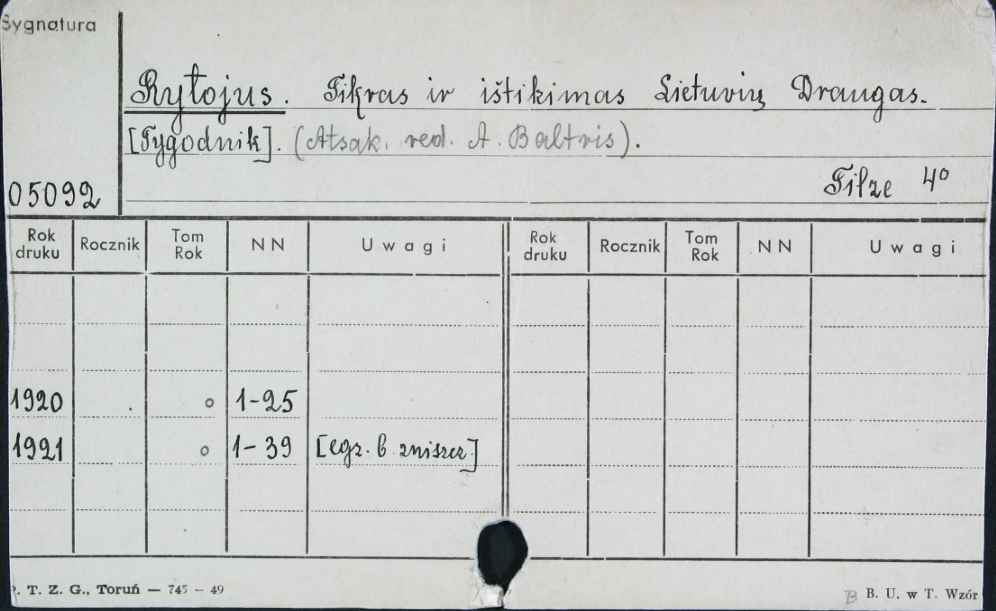 Sygnatura
Rytojus. Tikras ir ištikimas Lietuvių Draugas.
[Tygodnik]. (Atsak. red. A. Baltris).
05092
Tilze 4º
Rok druku Rocznik Tom Rok NN Uwagi Rok druku Rocznik Tom Rok NN Uwagi
1920 o 1-25
1921 o 1-39 [egz. b. zniszcz.]
. T. Z. G., Toruń — 745 – 49
B B. U. w T. Wzór